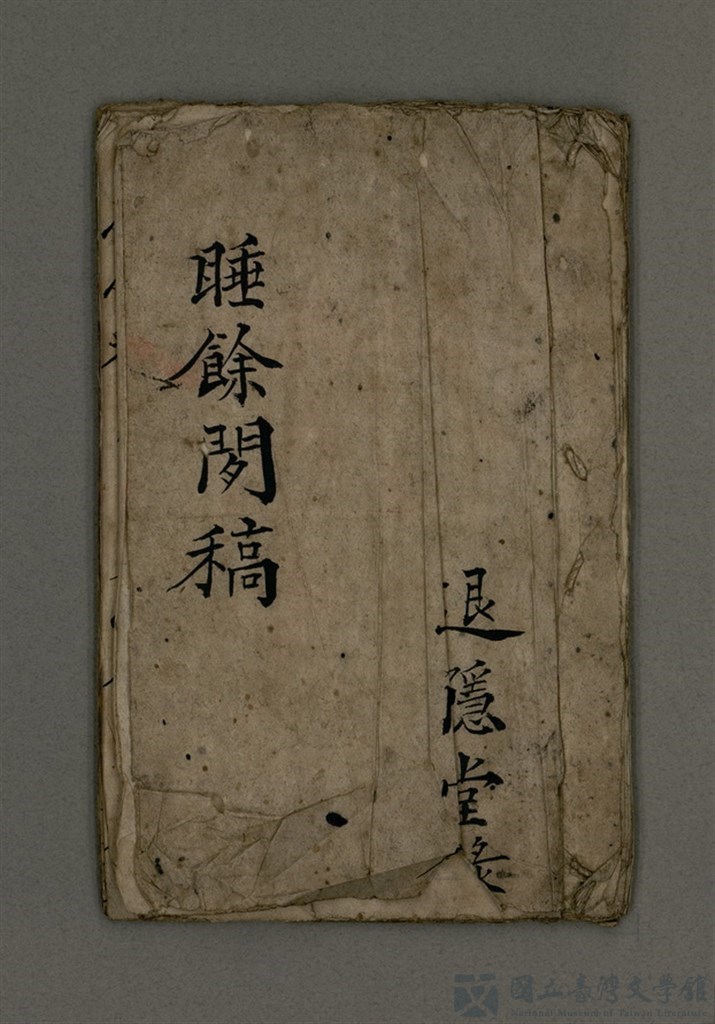 退隱堂
睡餘閒稿
國立臺灣文學館
National Museum of Taiwan Literature